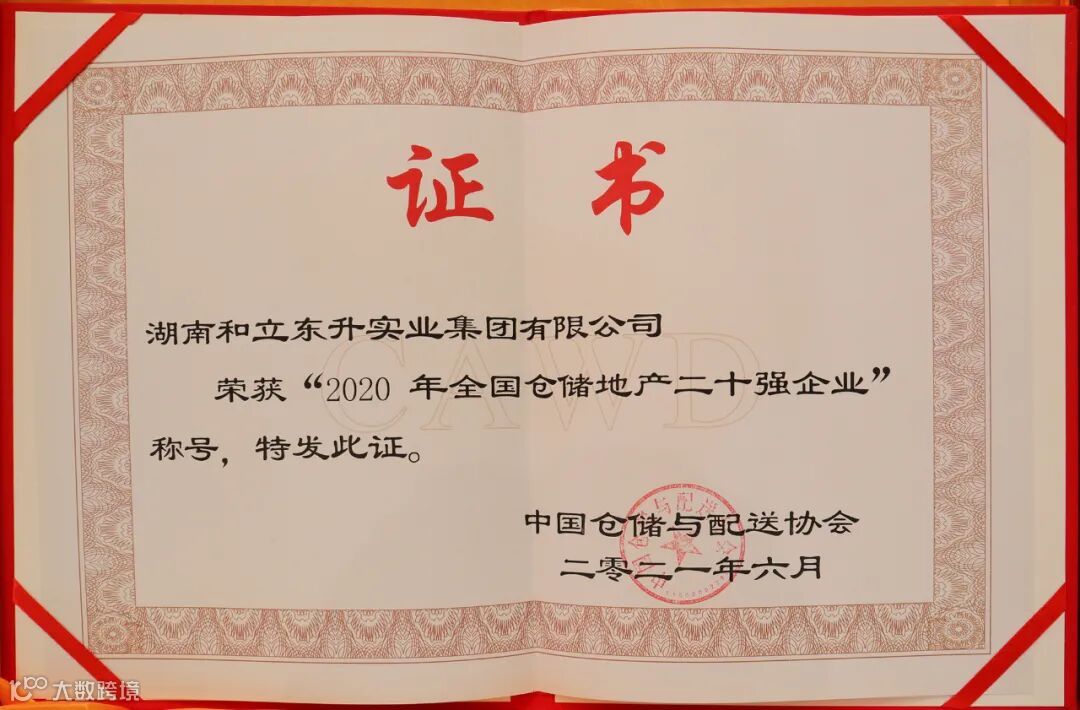 证书
湖南和立东升实业集团有限公司
荣获“2020 年全国仓储地产二十强企业”
称号，特发此证。
CAWD
中国仓储与配送协会
二零二一年六月
中国仓储与配送协会
大数跨境